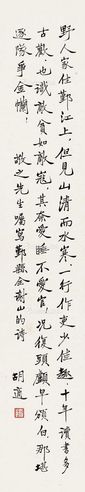 野人家住鄞江上,但見山清而水寒。一行作吏少佳趣,十年讀書多
古歡。也識敵貧如敵寇,其奈愛睡不愛官。況復頭顱早頒白,那堪
逐隊爭金襴!
先生囑寫鄞縣全謝山的詩
胡適